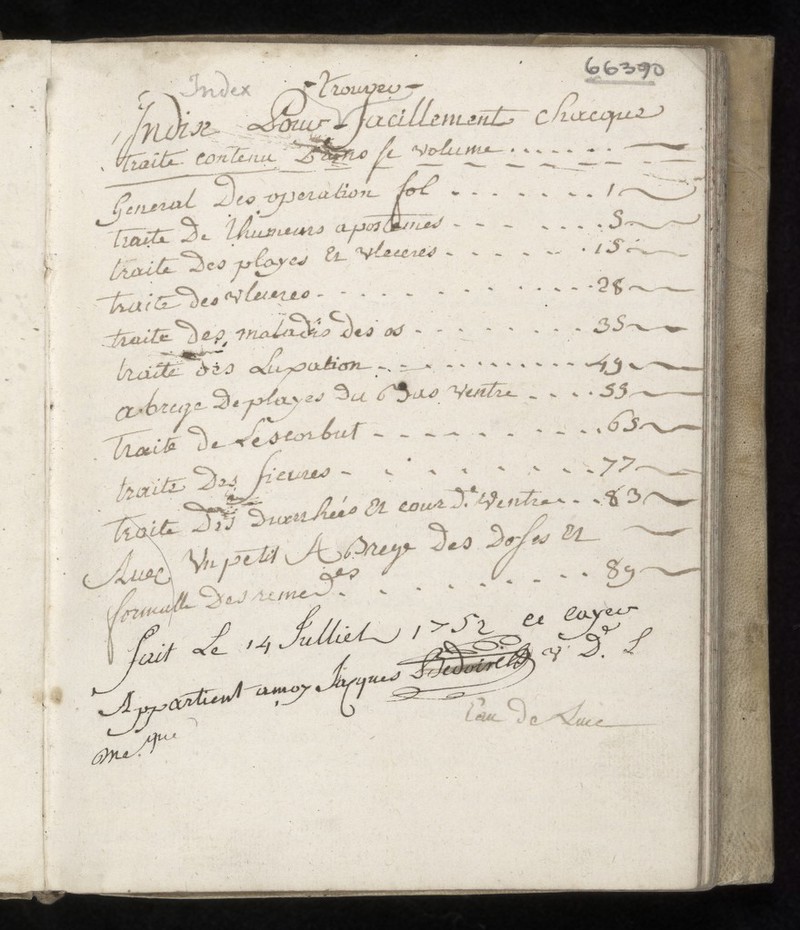 66390
Index
trouver
Indix Pour facillement chacque
traite contenu Dans se volume
General Des operation fol 1
traite De lhumeurs apostemes 5
traite Des playes Et vlceres 15
traite des vlceres 28
traite des maladis des os 35
traite des Luxation 49
abrege De playes du bas ventre 55
traite de Lescorbut 65
traite Des fievres 77
traite Des Diarrhées Et cour De Ventre 83
Avec Vn petit ABrege des Doses Et
formulle Des remedes 89
fait Le 14 Julliet 1752 ce cayer
Appartient amoy Jacques v D. L
me. que
Eau de Luce